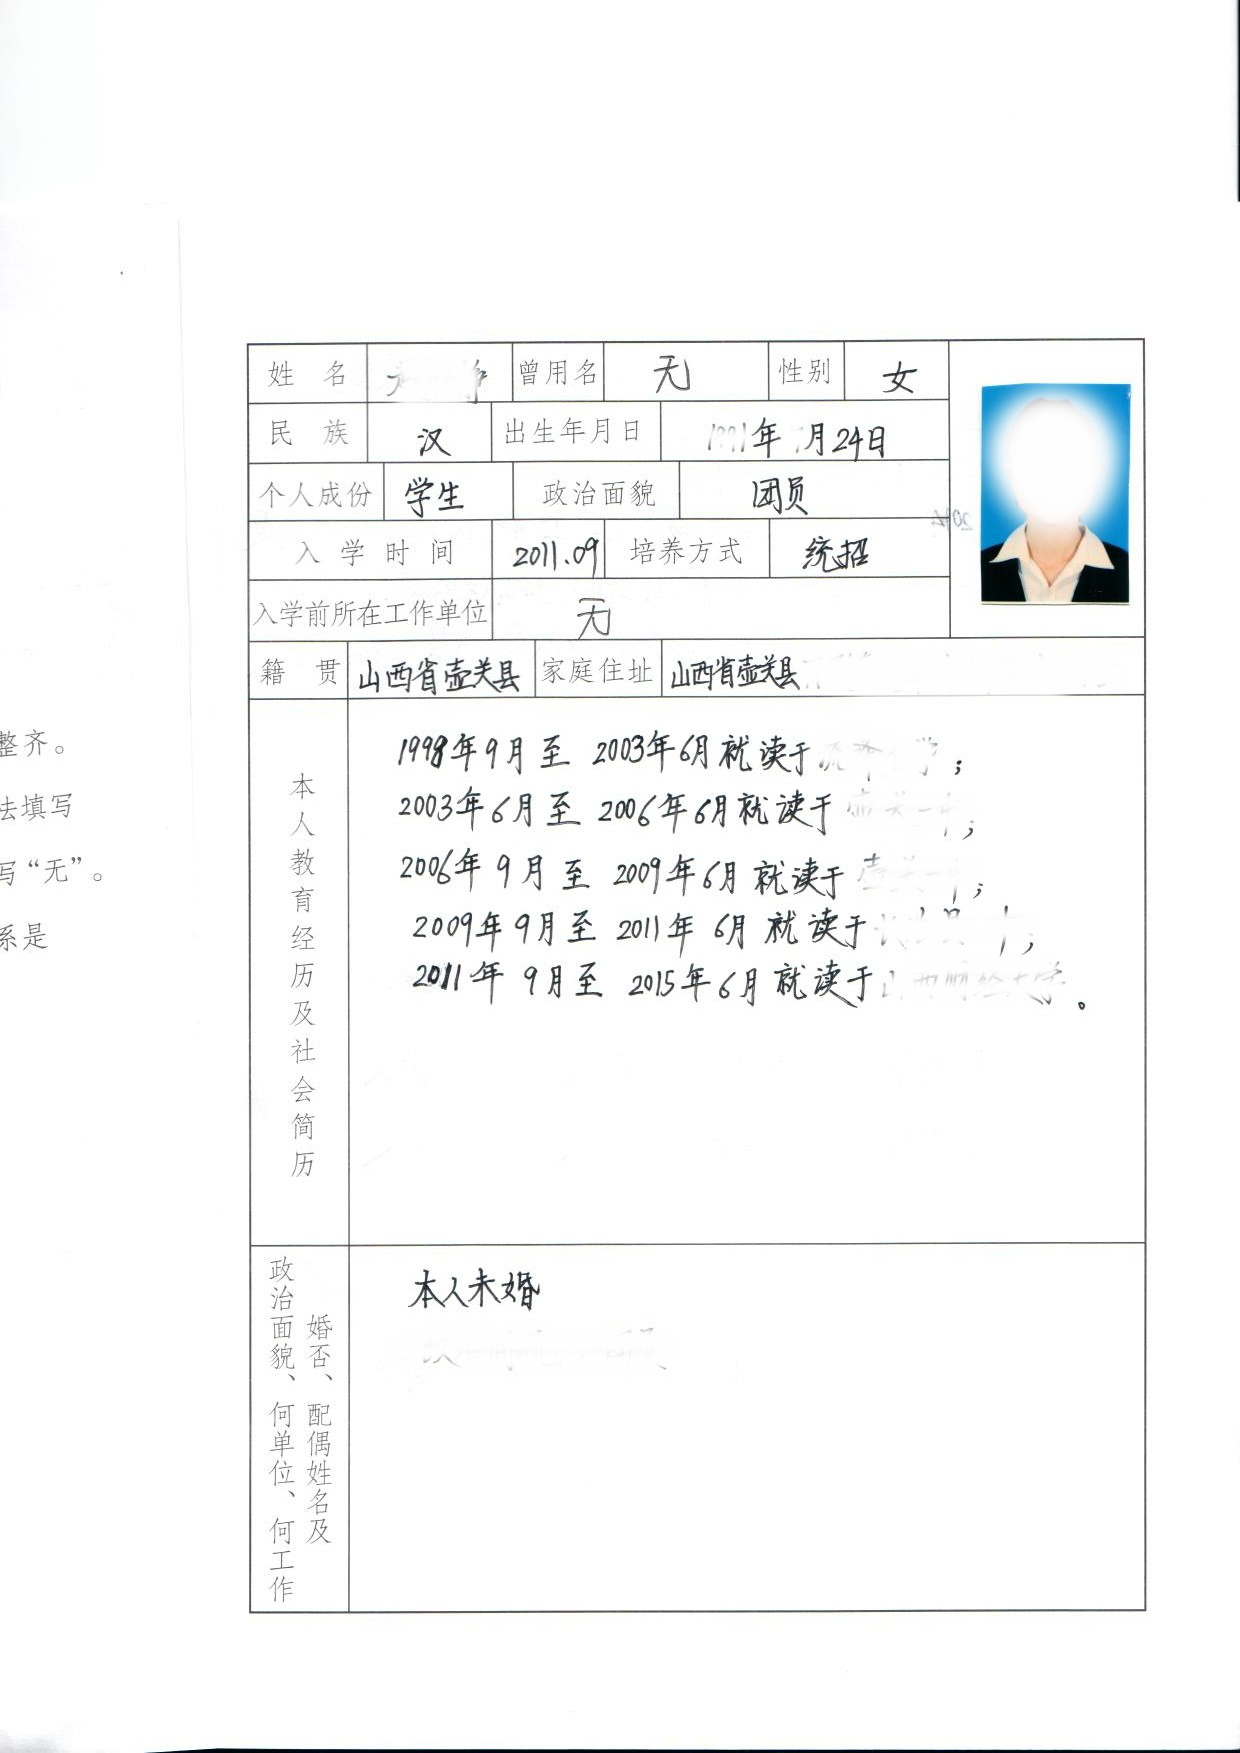 姓 名 曾用名 无 性别 女
民 族 汉 出生年月日 年 月24日
个人成份 学生 政治面貌 团员
入学时间 2011.09 培养方式 统招
入学前所在工作单位 无
籍 贯 山西省壶关县 家庭住址 山西省壶关县
本人教育经历及社会简历
1998年9月至 2003年6月就读于 ；
2003年6月至 2006年6月就读于 ；
2006年9月至 2009年6月就读于 ；
2009年9月至 2011年6月就读于 ；
2011年9月至 2015年6月就读于 。
婚否、配偶姓名及
政治面貌、何单位、何工作
本人未婚
整齐。
去填写
写“无”。
系是